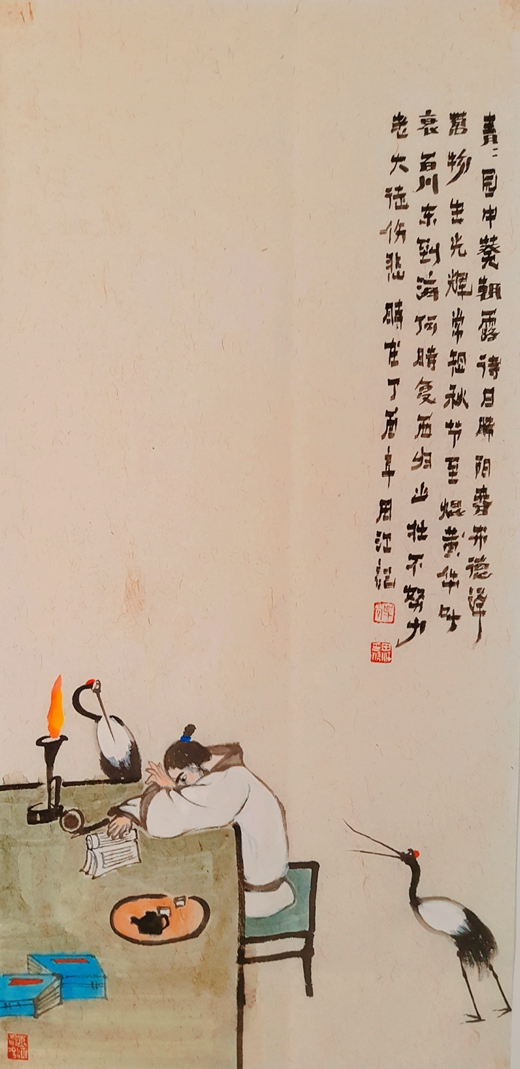 青〻园中葵朝露待日晞阳春布德泽
萬物生光辉常恐秋节至焜黄华叶
衰百川东到海何時复西归少壮不努力
老大徒伤悲 時在丁酉年周江记